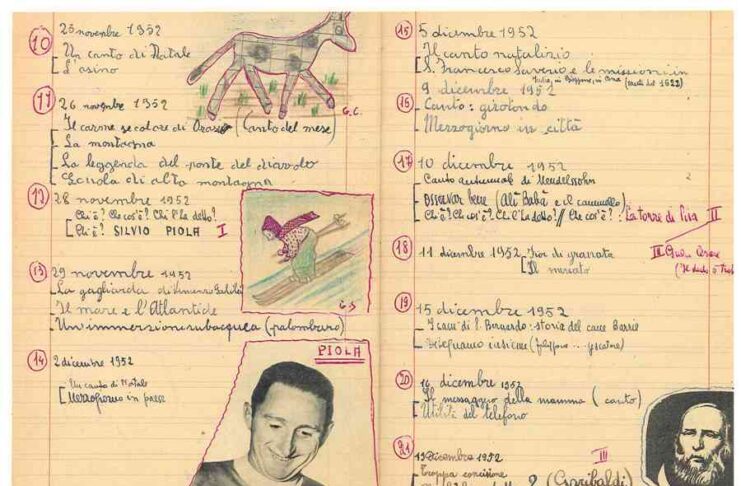 10
25 novembre 1952
Un canto di Natale
L'asino
G.C.
11
26 novembre 1952
Il carme secolare di Orazio (Canto del mese)
La montagna
La leggenda del ponte del diavolo
Scuola di alta montagna
12
28 novembre 1952
Chi è? Che cos'è? Chi l'ha detto?
Chi è? SILVIO PIOLA I
13
29 novembre 1952
La gagliarda di Vincenzo Galilei
Il mare e l'Atlantide
Un'immersione subacquea (palombaro)
G.S
14
2 dicembre 1952
Un canto di Natale
Mezzogiorno in paese
PIOLA
15
5 dicembre 1952
Il canto natalizio
S. Francesco Saverio e le missioni in
India, in Giappone, in Cina (santi del 1622)
16
9 dicembre 1952
Canto: girotondo
Mezzogiorno in città
17
10 dicembre 1952
Canto autunnale di Mendelssohn
Osservar bene (Alì Babà e il cammello)
Chi è? Che cos'è? Chi l'ha detto? // Che cos'è?: La torre di Pisa II
18
11 dicembre 1952 Fior di granata
Il mercato
II Giulio Cesare
(Il dado è
19
15 dicembre 1952
I cani di S. Bernardo: storia del cane Barris
Disegnamo insieme
20
16 dicembre 1952
Il messaggio della mamma (canto)
Utilità del telefono
21
19 Dicembre 1952 III
Troppa concisione
? (Garibaldi)